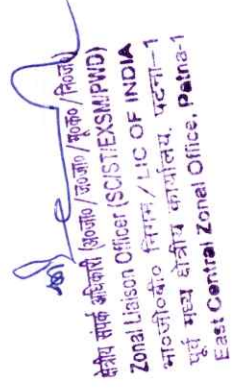 क्षेत्रीय संपर्क अधिकारी (अ०जा० / ज०जा० / भू०क० / नि०ज०)
Zonal Liaison Officer (SC/ST/EXSM/PWD)
भा०जी०बी० निगम / LIC OF INDIA
पूर्व मध्य क्षेत्रीय कार्यालय, पटना-1
East Central Zonal Office, Patna-1